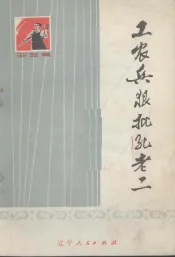 工农兵狠批孔老二
辽宁人民出版社